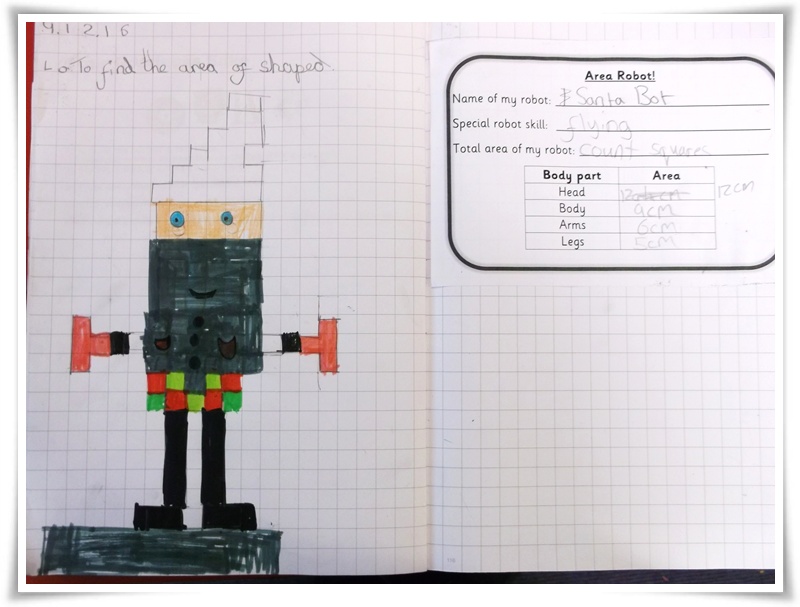 4.1 2.1 6
L o To find the area of shaped.
Area Robot!
Name of my robot: Santa Bot
Special robot skill: flying
Total area of my robot: count squares
Body part Area
Head 12cm
Body 9cm
Arms 6cm
Legs 5cm